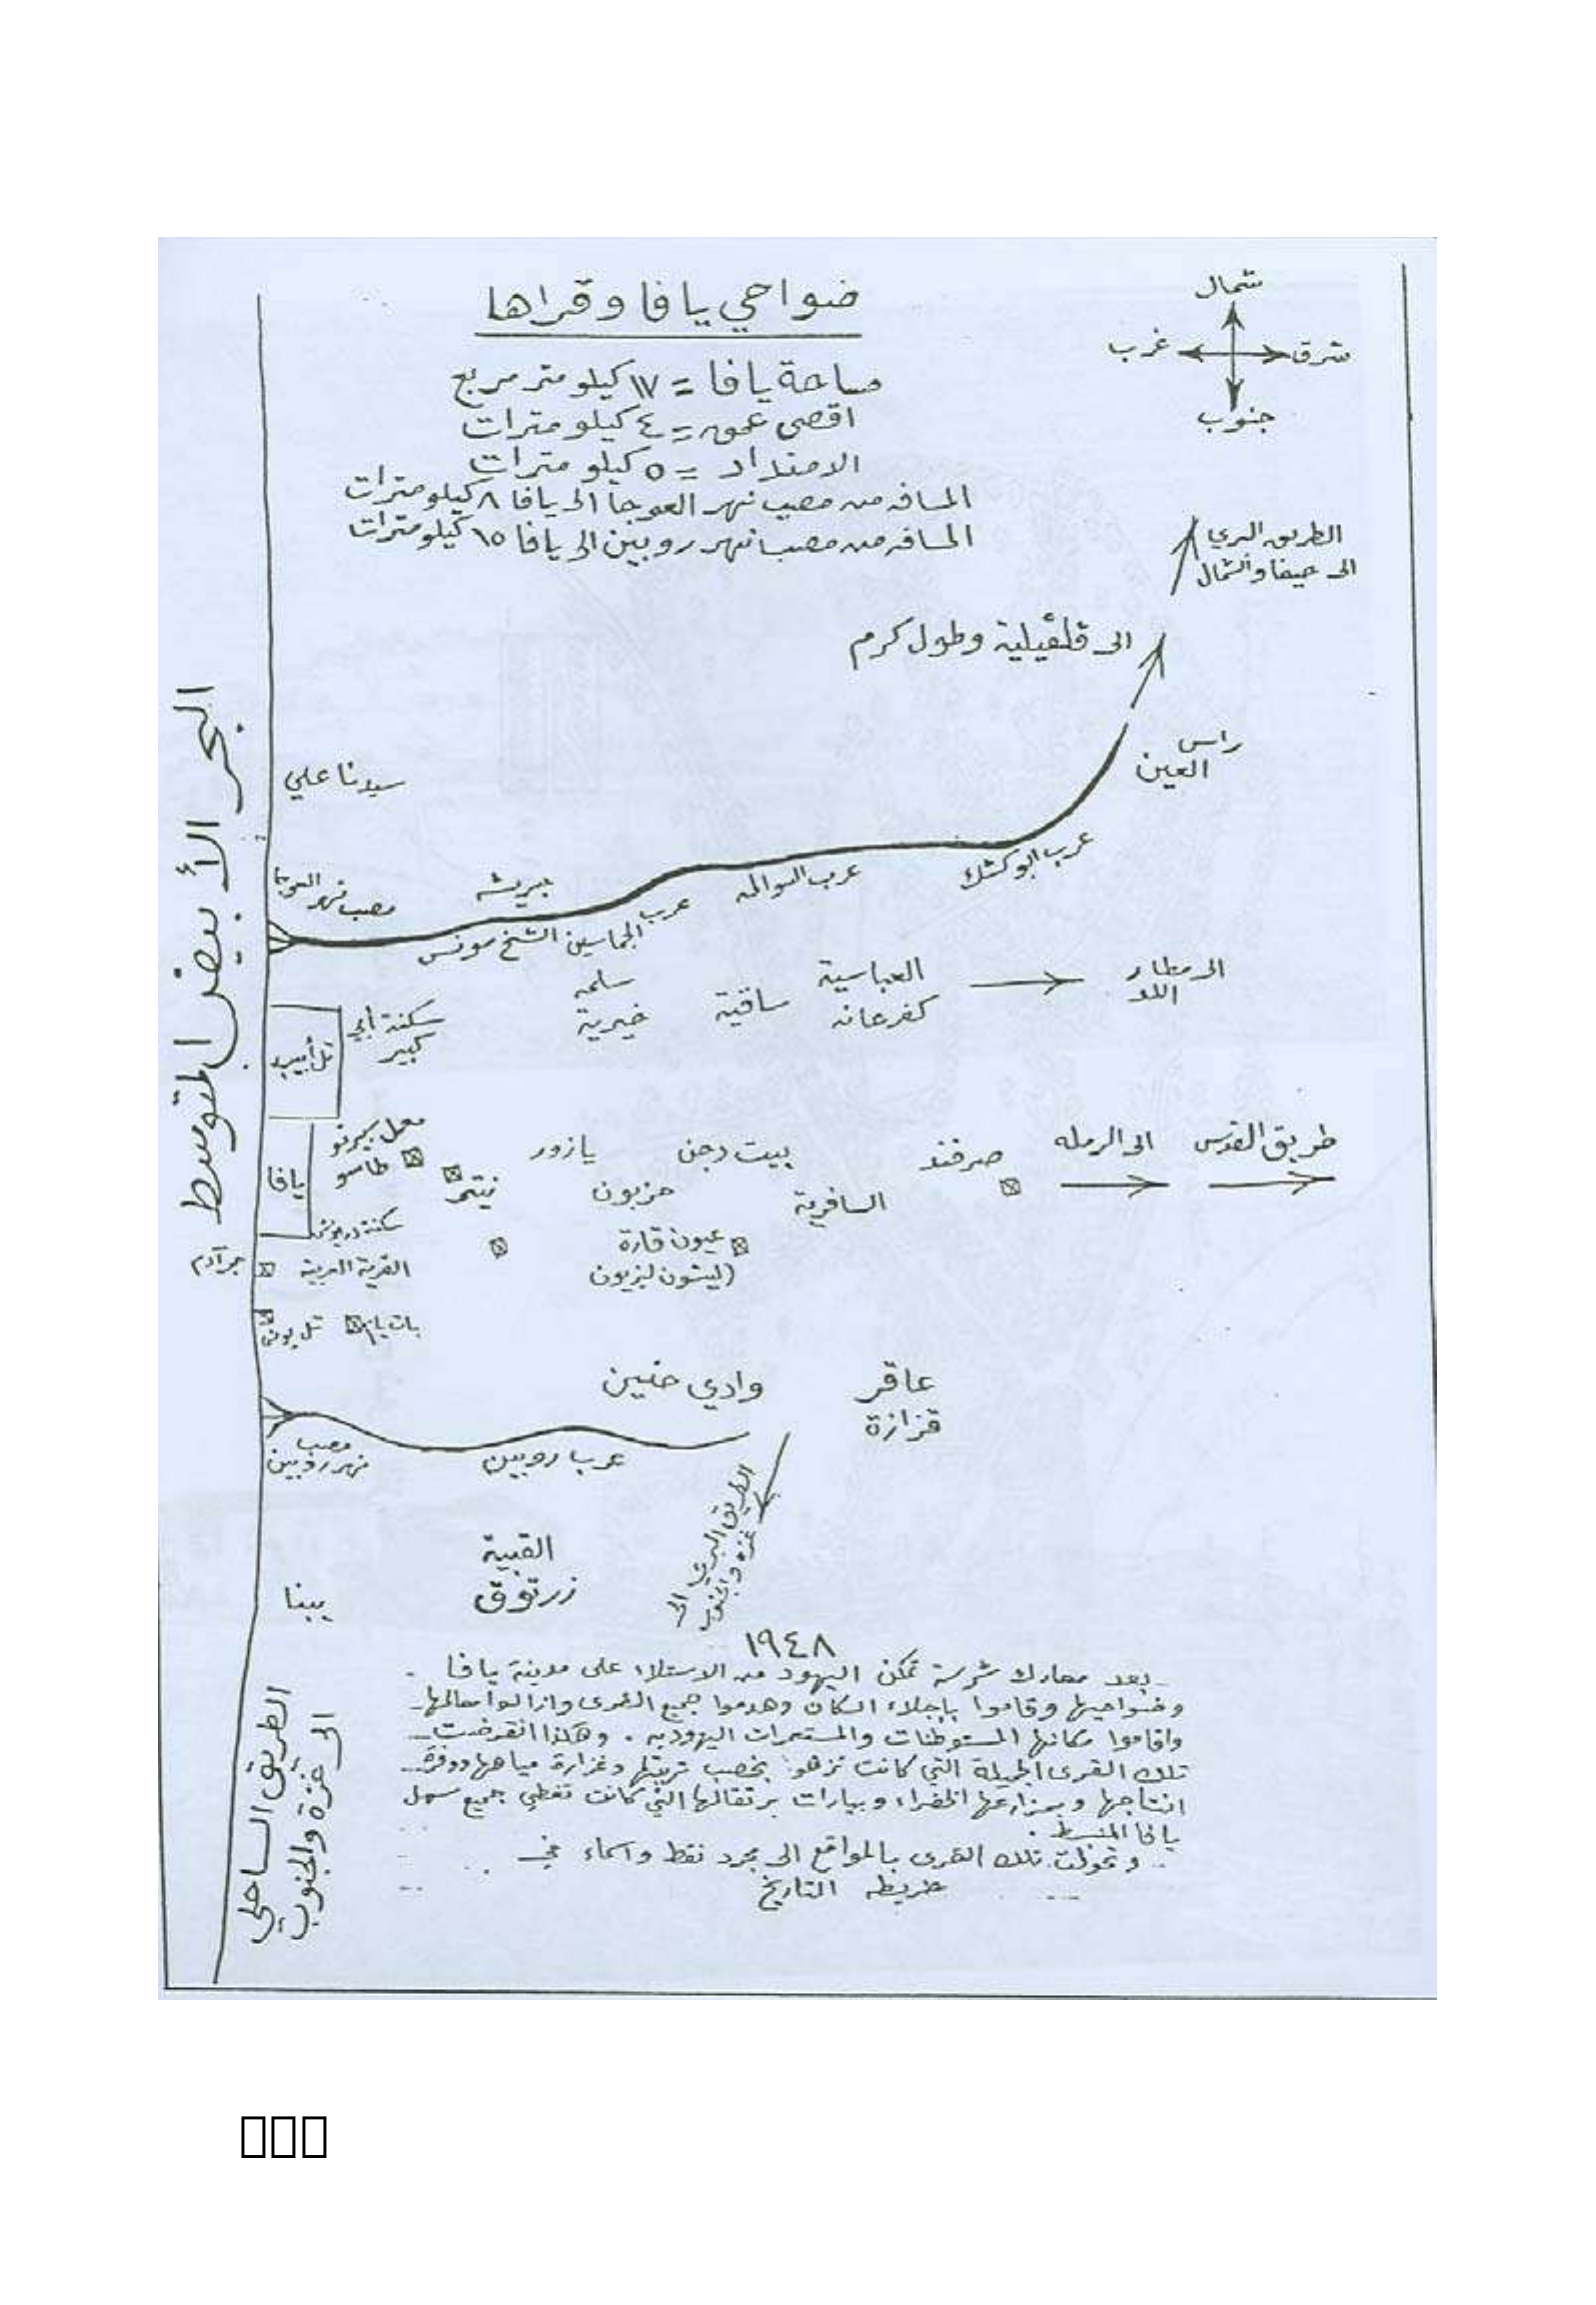 ضواحي يافا وقراها
شمال
شرق
غرب
جنوب
مساحة يافا = ١٧ كيلو متر مربع
اقصى عمق = ٤ كيلو مترات
الامتداد = ٥ كيلو مترات
المسافه من مصب نهر العوجا الى يافا ٨ كيلو مترات
المسافه من مصب نهر روبين الى يافا ١٥ كيلو مترات
الطريق البري
الى حيفا والشمال
الى قلقيلية وطول كرم
راس
العين
البحر الأبيض المتوسط
سيدنا علي
مصب نهر العوجا
جريشه
عرب ابو كشك
عرب السوالمه
عرب
الجماسين
الشيخ مونس
سلمه
خيرية
ساقية
العباسية
كفر عانه
الى مطار
اللد
سكنة ابي
كبير
تل أبيب
يافا
معمل بيرنو
طاسو
نيتر
يازور
بيت دجن
صرفند
الى الرمله
طريق القدس
حزبون
السافرية
عيون قارة
(ليشون ليزيون
سكنة درويش
القرية العربية
بات يام
وادي حنين
عاقر
قزازة
مصب
نهر روبين
عرب روبين
الطريق البري الى
غزه والجنوب
القبية
زرنوقة
يبنا
الطريق الساحلي
الى غزة والجنوب
١٩٤٨
بعد معارك شرسة تمكن اليهود من الاستلاء على مدينة يافا
وضواحيها وقاموا بإجلاء السكان وهدموا جميع القرى وازالوا معالمها
واقاموا مكانها المستوطنات والمستعمرات اليهوديه . وهكذا انقرضت
تلك القرى الجميلة التي كانت تزهو بخصب تربتها وغزارة مياهها ووفرة
انتاجها وبمزارعها الخضراء وبيارات برتقالها التي كانت تغطي جميع سهل
يافا المنبسط .
وتحولت تلك القرى بالمواقع الى مجرد نقط واسماء في
خريطه التاريخ